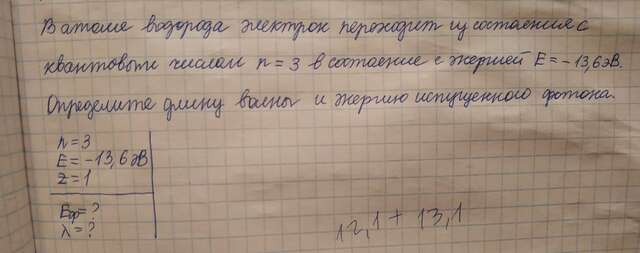 В атоме водорода электрон переходит из состояния с
квантовым числом n = 3 в состояние с энергией E = -13,6 эВ.
Определите длину волны и энергию испущенного фотона.
n = 3
E = -13,6 эВ
z = 1
Eф = ?
λ = ?
12,1 + 13,1